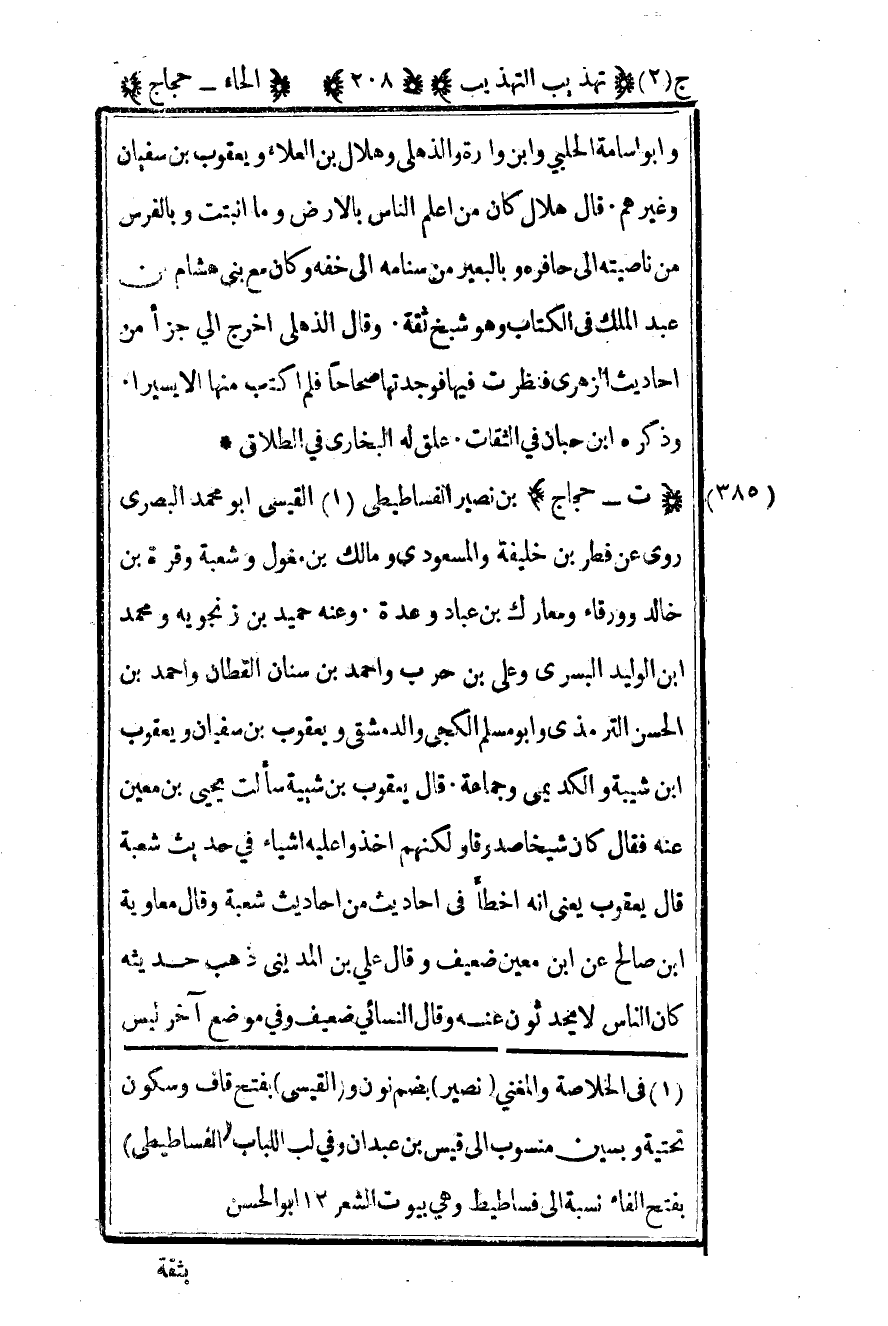 ج(٢) ﴿ تهذيب التهذيب ﴾ ﴿ ٢٠٨ ﴾ ﴿ الحاء ـ حجاج ﴾
وابو اسامة الحلبي وابن وارة والذهلى وهلال بن العلاء ويعقوب بن سفيان
وغيرهم · قال هلال كان من اعلم الناس بالارض وما انبتت وبالفرس
من ناصيته الى حافره وبالبعير من سنامه الى خفه وكان مع بنى هشام بن
عبد الملك فى الكتاب وهو شيخ ثقة · وقال الذهلى اخرج الي جزأ من
احاديث الزهرى فنظرت فيها فوجدتها صحاحاً فلم اكتب منها الا يسيرا ·
وذكره ابن حبان في الثقات · علق له البخارى في الطلاق *
(٣٨٥) ﴿ ت ـ حجاج ﴾ بن نصير الفساطيطى (١) القيسى ابو محمد البصرى
روى عن فطر بن خليفة والمسعودى ومالك بن مغول وشعبة وقرة بن
خالد وورقاء ومعارك بن عباد وعدة · وعنه حميد بن زنجويه ومحمد
ابن الوليد البسرى وعلى بن حرب واحمد بن سنان القطان واحمد بن
الحسن الترمذى وابو مسلم الكجى والدمشقى ويعقوب بن سفيان ويعقوب
ابن شيبة والكديمى وجماعة · قال يعقوب بن شيبة سألت يحيى بن معين
عنه فقال كان شيخا صدوقا ولكنهم اخذوا عليه اشياء في حديث شعبة
قال يعقوب يعنى انه اخطأ فى احاديث من احاديث شعبة وقال معاوية
ابن صالح عن ابن معين ضعيف وقال علي بن المدينى ذهب حديثه
كان الناس لا يحدثون عنه وقال النسائي ضعيف وفي موضع آخر ليس
(١) فى الخلاصة والمغني (نصير) بضم نون و(القيسى) بفتح قاف وسكون
تحتية وبسين منسوب الى قيس بن عبدان وفي لب اللباب (الفساطيطى)
بفتح الفاء نسبة الى فساطيط وهي بيوت الشعر ١٢ ابو الحسن
بثقة